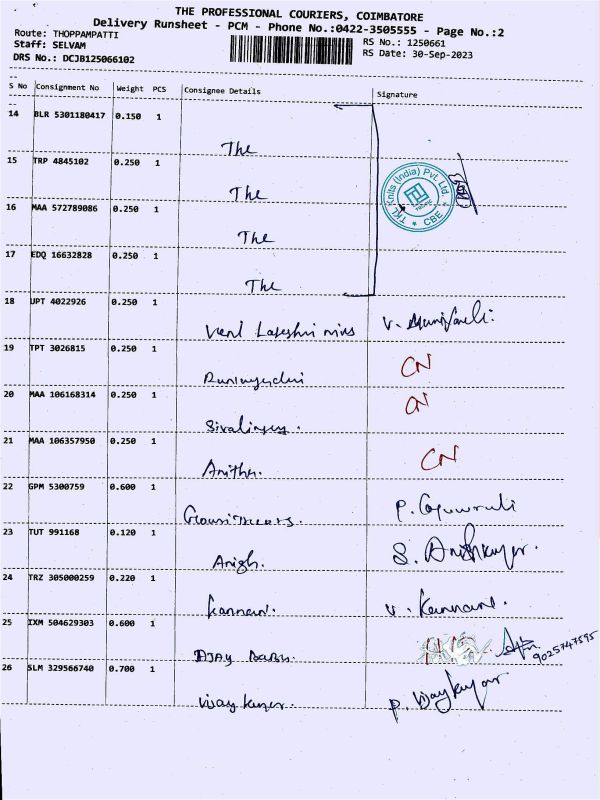 THE PROFESSIONAL COURIERS, COIMBATORE
Delivery Runsheet - PCM - Phone No.:0422-3505555 - Page No.:2
Route: THOPPAMPATTI
Staff: SELVAM
DRS No.: DCJB125066102
RS No.: 1250661
RS Date: 30-Sep-2023
S No Consignment No Weight PCS Consignee Details Signature
14 BLR 5301180417 0.150 1
The
15 TRP 4845102 0.250 1
The
TKL Knits (India) Pvt. Ltd. * CBE *
16 MAA 572789086 0.250 1
The
17 EDQ 16632828 0.250 1
The
18 UPT 4022926 0.250 1
V.
19 TPT 3026815 0.250 1
CN
20 MAA 106168314 0.250 1
CN
21 MAA 106357950 0.250 1
Anitha. CN
22 GPM 5300759 0.600 1
P.
23 TUT 991168 0.120 1
S.
24 TRZ 305000259 0.220 1
Kannan. V. Kannan.
25 IXM 504629303 0.600 1
AJAY BABU. 9025747595
26 SLM 329566740 0.700 1
Vijay kumar. P. Vijaykumar